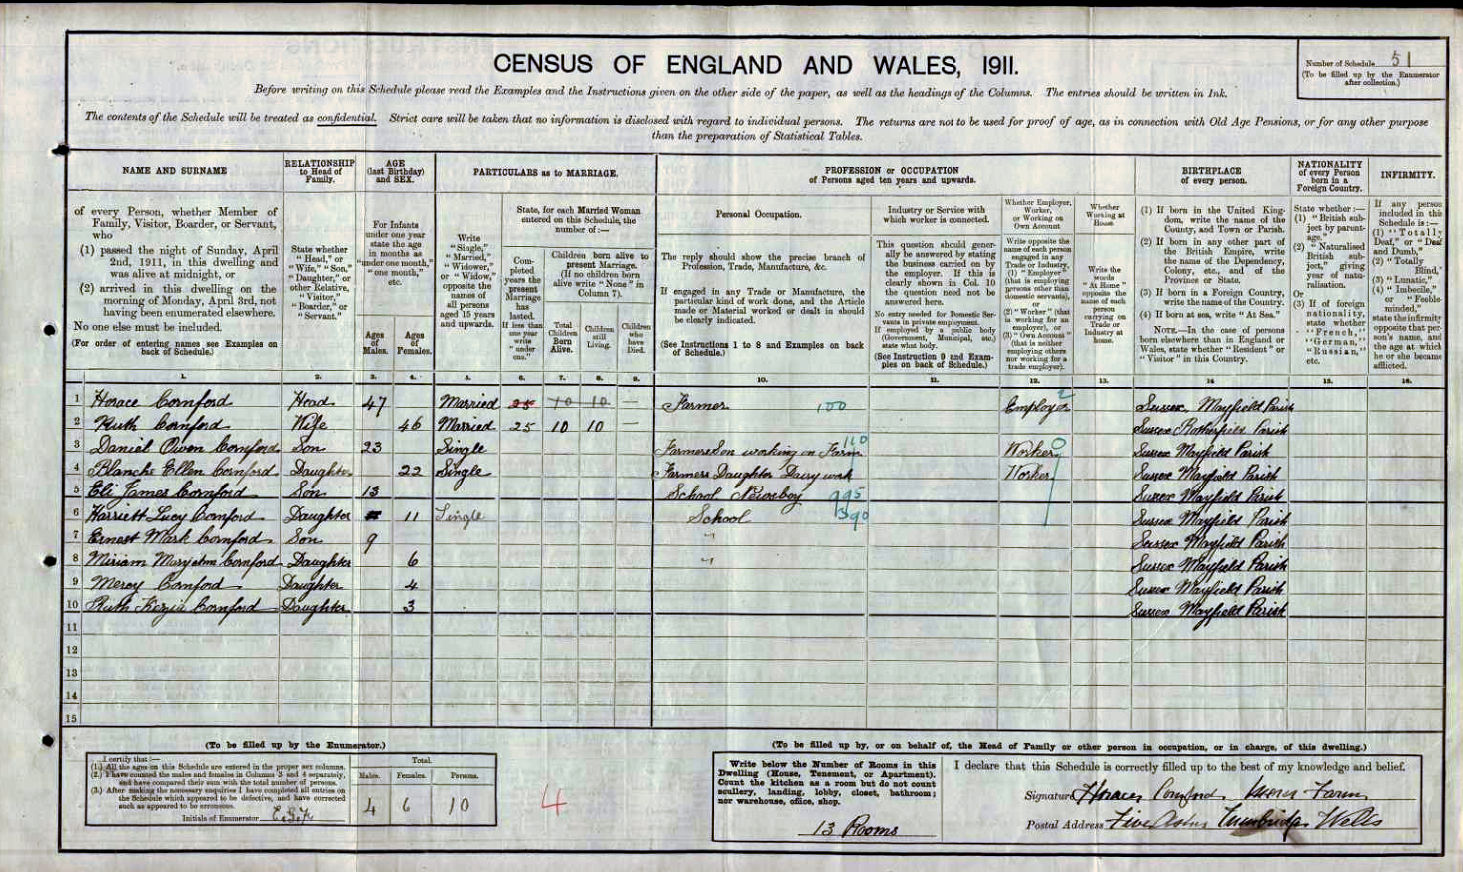 CENSUS OF ENGLAND AND WALES, 1911.
Number of Schedule 51
(To be filled up by the Enumerator after collection.)
Before writing on this Schedule please read the Examples and the Instructions given on the other side of the paper, as well as the headings of the Columns. The entries should be written in Ink.
The contents of the Schedule will be treated as confidential. Strict care will be taken that no information is disclosed with regard to individual persons. The returns are not to be used for proof of age, as in connection with Old Age Pensions, or for any other purpose
than the preparation of Statistical Tables.
NAME AND SURNAME
of every Person, whether Member of Family, Visitor, Boarder, or Servant, who
(1) passed the night of Sunday, April 2nd, 1911, in this dwelling and was alive at midnight, or
(2) arrived in this dwelling on the morning of Monday, April 3rd, not having been enumerated elsewhere.
No one else must be included.
(For order of entering names see Examples on back of Schedule.)
RELATIONSHIP to Head of Family.
State whether "Head," or "Wife," "Son," "Daughter," or other Relative, "Visitor," "Boarder," or "Servant."
AGE (last Birthday) and SEX.
For Infants under one year state the age in months as "under one month," "one month," etc.
Ages of Males.
Ages of Females.
PARTICULARS as to MARRIAGE.
Write "Single," "Married," "Widower," or "Widow," opposite the names of all persons aged 15 years and upwards.
State, for each Married Woman entered on this Schedule, the number of :—
Completed years the present Marriage has lasted. If less than one year write "under one."
Children born alive to present Marriage. (If no children born alive write "None" in Column 7).
Total Children Born Alive.
Children still Living.
Children who have Died.
PROFESSION or OCCUPATION of Persons aged ten years and upwards.
Personal Occupation.
The reply should show the precise branch of Profession, Trade, Manufacture, &c.
If engaged in any Trade or Manufacture, the particular kind of work done, and the Article made or Material worked or dealt in should be clearly indicated.
(See Instructions 1 to 8 and Examples on back of Schedule.)
Industry or Service with which worker is connected.
This question should generally be answered by stating the business carried on by the employer. If this is clearly shown in Col. 10 the question need not be answered here.
No entry needed for Domestic Servants in private employment.
If employed by a public body (Government, Municipal, etc.) state what body.
(See Instruction 9 and Examples on back of Schedule.)
Whether Employer, Worker, or Working on Own Account
Write opposite the name of each person engaged in any Trade or Industry,
(1) "Employer" (that is employing persons other than domestic servants), or
(2) "Worker" (that is working for an employer), or
(3) "Own Account" (that is neither employing others nor working for a trade employer).
Whether Working at Home
Write the words "At Home" opposite the name of each person carrying on Trade or Industry at home.
BIRTHPLACE of every person.
(1) If born in the United Kingdom, write the name of the County, and Town or Parish.
(2) If born in any other part of the British Empire, write the name of the Dependency, Colony, etc., and of the Province or State.
(3) If born in a Foreign Country, write the name of the Country.
(4) If born at sea, write "At Sea."
NOTE.—In the case of persons born elsewhere than in England or Wales, state whether "Resident" or "Visitor" in this Country.
NATIONALITY of every Person born in a Foreign Country.
State whether :—
(1) "British subject by parentage."
(2) "Naturalised British subject," giving year of naturalisation.
Or
(3) If of foreign nationality, state whether "French," "German," "Russian," etc.
INFIRMITY.
If any person included in this Schedule is :—
(1) "Totally Deaf," or "Deaf and Dumb,"
(2) "Totally Blind,"
(3) "Lunatic,"
(4) "Imbecile," or "Feeble-minded,"
state the infirmity opposite that person's name, and the age at which he or she became afflicted.
1. 2. 3. 4. 5. 6. 7. 8. 9. 10. 11. 12. 13. 14 15. 16.
1 Horace Cornford Head 47 Married 25 10 10 — Farmer 100 Employer 2 Sussex, Mayfield Parish
2 Ruth Cornford Wife 46 Married 25 10 10 — Sussex Rotherfield Parish
3 Daniel Owen Cornford Son 23 Single Farmers Son working on Farm 110 Worker 0 Sussex Mayfield Parish
4 Blanche Ellen Cornford Daughter 22 Single Farmers Daughter Dairy work Worker Sussex Mayfield Parish
5 Eli James Cornford Son 13 School Newsboy 995 Sussex Mayfield Parish
6 Harriett Lucy Cornford Daughter 11 Single School 390 Sussex Mayfield Parish
7 Ernest Mark Cornford Son 9 " Sussex Mayfield Parish
8 Miriam Maryann Cornford Daughter 6 " Sussex Mayfield Parish
9 Mercy Cornford Daughter 4 Sussex Mayfield Parish
10 Ruth Kezia Cornford Daughter 3 Sussex Mayfield Parish
11
12
13
14
15
(To be filled up by the Enumerator.)
I certify that :—
(1.) All the ages on this Schedule are entered in the proper sex columns.
(2.) I have counted the males and females in Columns 3 and 4 separately, and have compared their sum with the total number of persons.
(3.) After making the necessary enquiries I have completed all entries on the Schedule which appeared to be defective, and have corrected such as appeared to be erroneous.
Initials of Enumerator
Total.
Males. Females. Persons.
4 6 10
4
(To be filled up by, or on behalf of, the Head of Family or other person in occupation, or in charge, of this dwelling.)
Write below the Number of Rooms in this Dwelling (House, Tenement, or Apartment). Count the kitchen as a room but do not count scullery, landing, lobby, closet, bathroom; nor warehouse, office, shop.
13 Rooms
I declare that this Schedule is correctly filled up to the best of my knowledge and belief.
Signature Horace Cornford Farm
Postal Address Five Ashes Tunbridge Wells